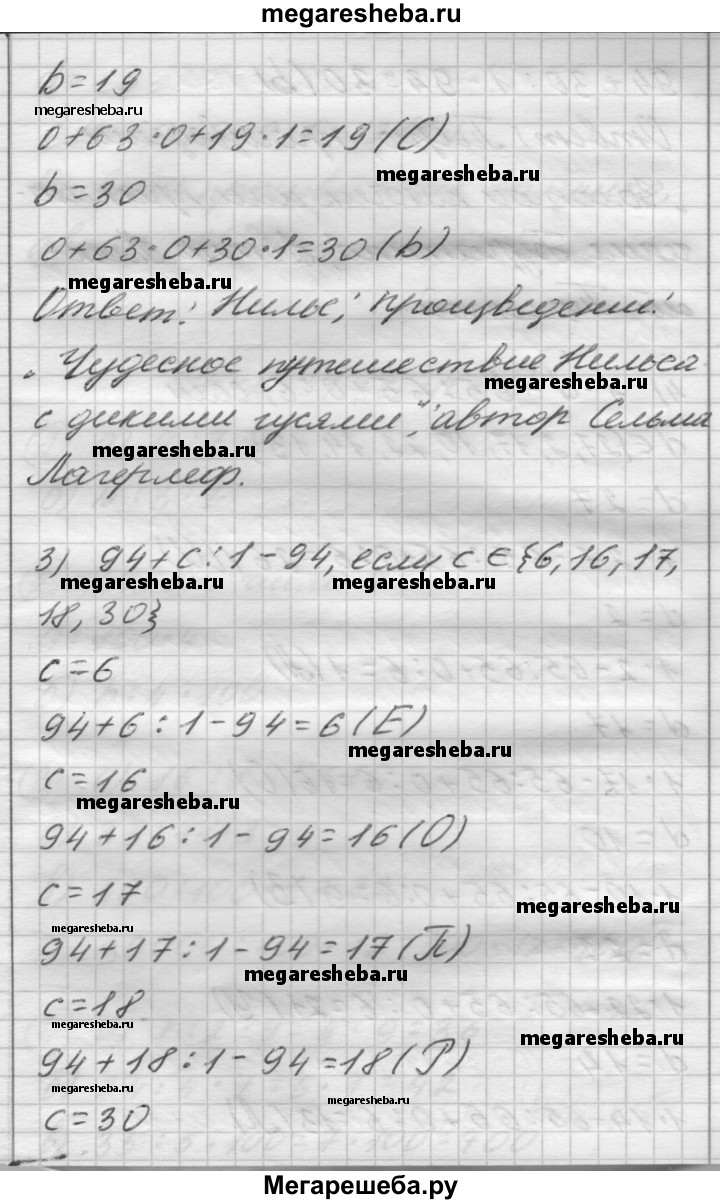 megaresheba.ru
b=19
megaresheba.ru
0+63·0+19·1=19(С)
megaresheba.ru
b=30
0+63·0+30·1=30(b)
megaresheba.ru
Ответ: Нильс; произведение:
„Чудесное путешествие Нильса
megaresheba.ru
с дикими гусями"; автор Сельма
megaresheba.ru
Лагерлеф.
3) 94+c:1-94, если c∈{6,16,17,
megaresheba.ru megaresheba.ru
18,30}
c=6
94+6:1-94=6(Е)
megaresheba.ru
c=16
megaresheba.ru
94+16:1-94=16(О)
c=17
megaresheba.ru
megaresheba.ru
94+17:1-94=17(П)
megaresheba.ru
c=18
megaresheba.ru
megaresheba.ru
94+18:1-94=18(Р)
megaresheba.ru
megaresheba.ru
c=30
Мегарешеба.ру